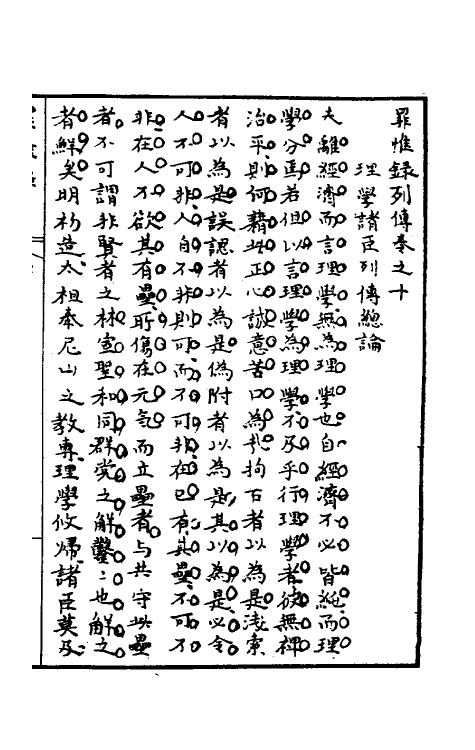 罪惟錄列傳卷之十
理學諸臣列傳總論
夫離經濟而言理學無為理學也自經濟不必皆純而理
學分焉若但以言理學為理學不及乎行理學者彼無裨
治平則何藉此正心誠意苦口為哉拘古者以為是淺索
者以為是誤認者以為是偽附者以為是其以為是必令
人不可非人自不非則可而不可非在已有其壘不可不
非在人不欲其有壘所傷在元氣而立壘者與共守此壘
者不可謂非賢者之林宣聖和同群党之解鑿鑿也解之
者鮮矣明初造太祖奉尼山之教專理學攸歸諸臣莫及